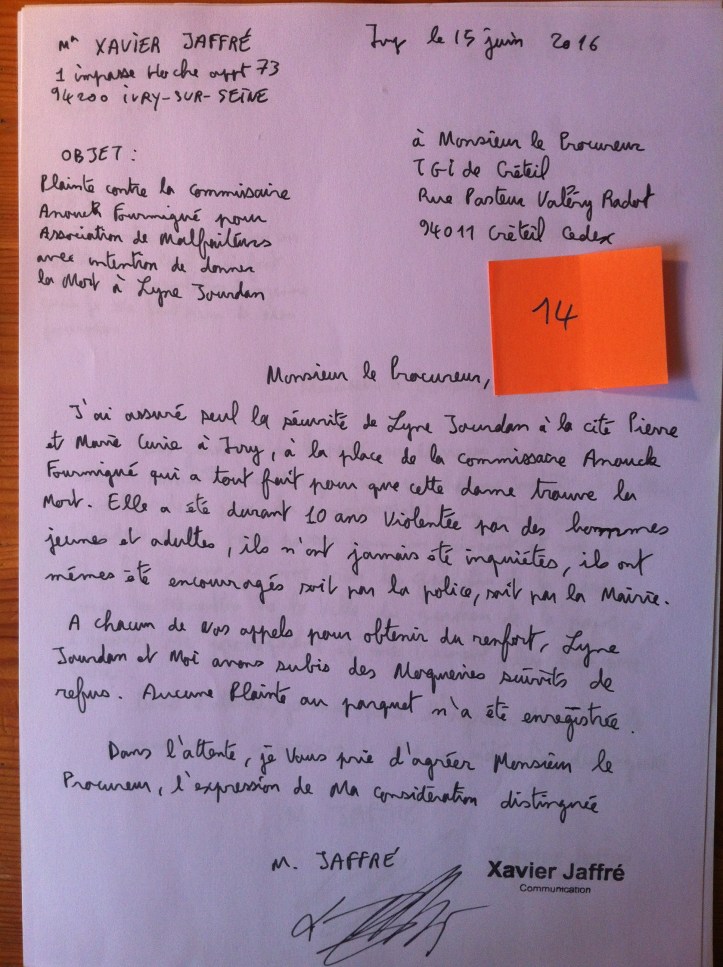 Mr XAVIER JAFFRÉ
1 impasse Hoche appt 73
94200 IVRY-SUR-SEINE
Ivry le 15 juin 2016
à Monsieur le Procureur
TGI de Créteil
Rue Pasteur Valéry Radot
94011 Créteil Cedex
OBJET :
Plainte contre la Commissaire
Anouck Fourmigué pour
Association de Malfaiteurs
avec intention de donner
la Mort à Lyne Jourdan
14
Monsieur le Procureur,
J'ai assuré seul la sécurité de Lyne Jourdan à la cité Pierre
et Marie Curie à Ivry, à la place de la commissaire Anouck
Fourmigué qui a tout fait pour que cette dame trouve la
Mort. Elle a été durant 10 ans Violentée par des hommes
jeunes et adultes, ils n'ont jamais été inquiétés, ils ont
mêmes été encouragés soit par la police, soit par la Mairie.
A chacun de nos appels pour obtenir du renfort, Lyne
Jourdan et Moi avons subis des Moqueries suivits de
refus. Aucune Plainte au parquet n'a été enregistrée.
Dans l'attente, je Vous prie d'agréer Monsieur le
Procureur, l'expression de Ma considération distinguée
M. JAFFRÉ
Xavier Jaffré
Communication